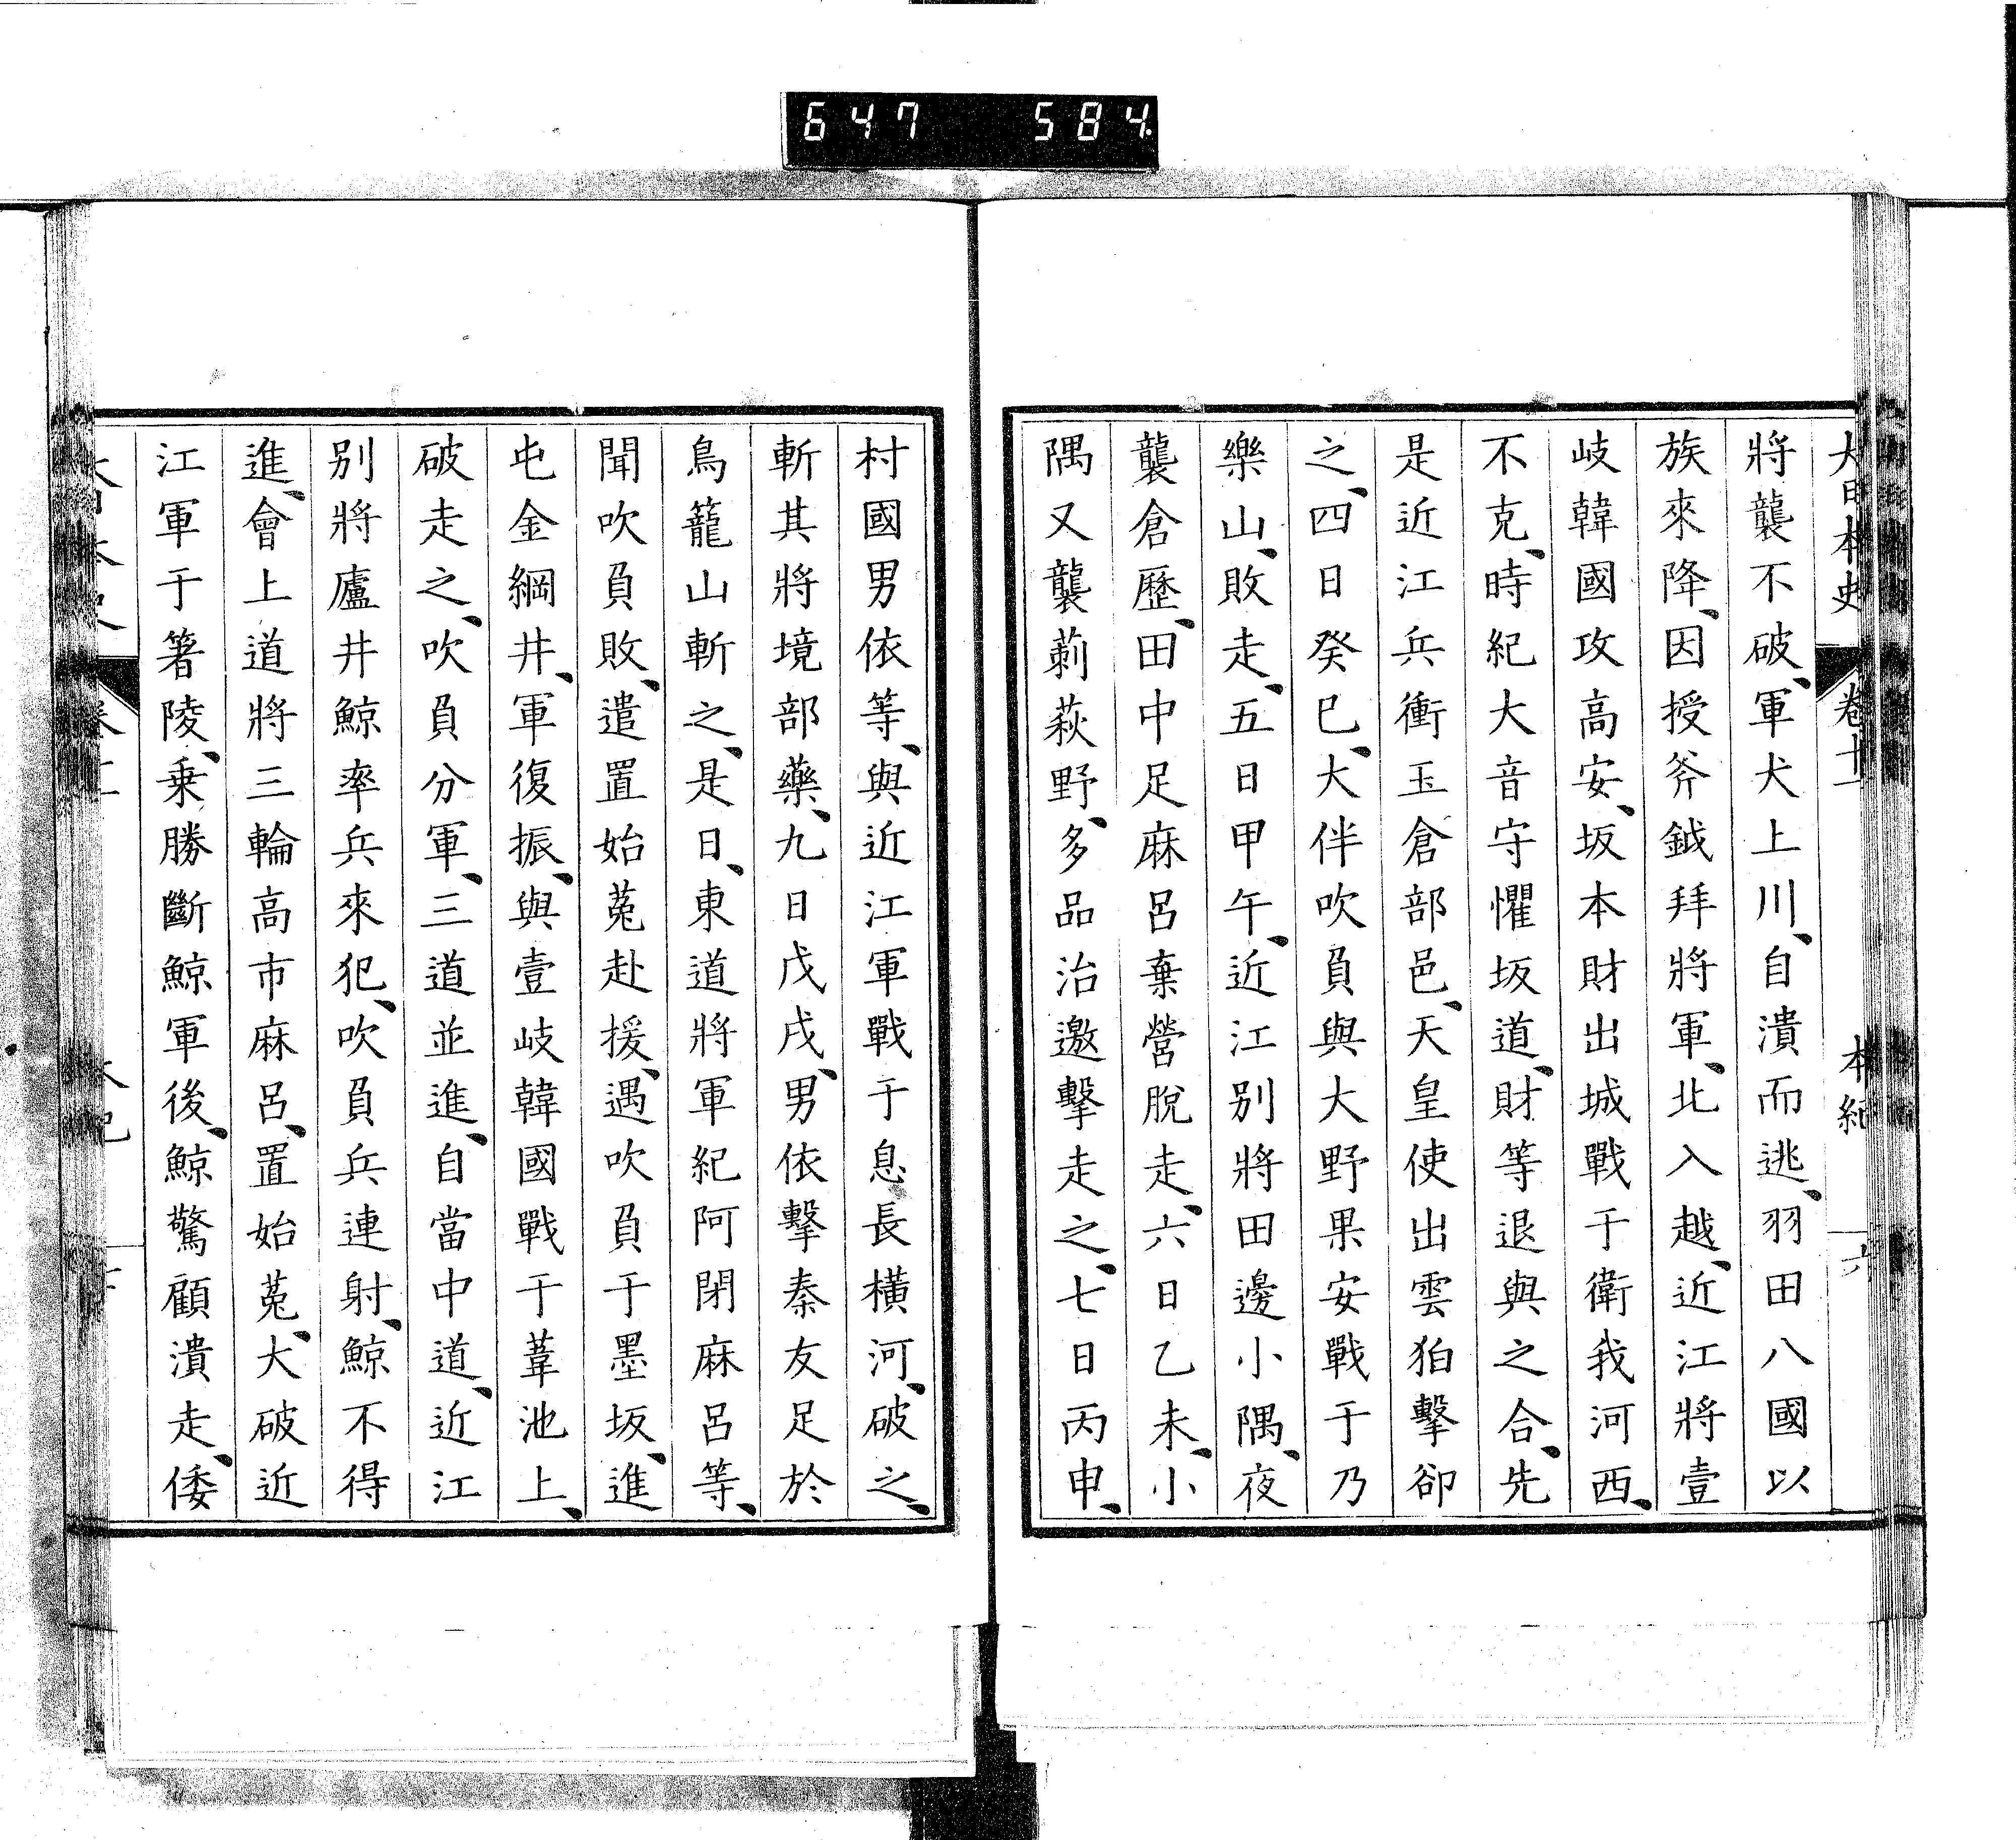 647 584.
大日本史 卷十一 本紀 六
將襲不破、軍犬上川、自潰而逃、羽田八國以
族來降、因授斧鉞拜將軍、北入越、近江將壹
岐韓國攻高安、坂本財出城戰于衛我河西、
不克、時紀大音守懼坂道、財等退與之合、先
是近江兵衝玉倉部邑、天皇使出雲狛擊卻
之、四日癸巳、大伴吹負與大野果安戰于乃
樂山、敗走、五日甲午、近江別將田邊小隅、夜
襲倉歷、田中足麻呂棄營脫走、六日乙未、小
隅又襲莿萩野、多品治邀擊走之、七日丙申、
村國男依等、與近江軍戰于息長橫河、破之、
斬其將境部藥、九日戊戌、男依擊秦友足於
鳥籠山斬之、是日、東道將軍紀阿閉麻呂等、
聞吹負敗、遣置始菟赴援、遇吹負于墨坂、進
屯金綱井、軍復振、與壹岐韓國戰于葦池上、
破走之、吹負分軍、三道並進、自當中道、近江
別將廬井鯨率兵來犯、吹負兵連射、鯨不得
進、會上道將三輪高市麻呂、置始菟、大破近
江軍于箸陵、乘勝斷鯨軍後、鯨驚顧潰走、倭